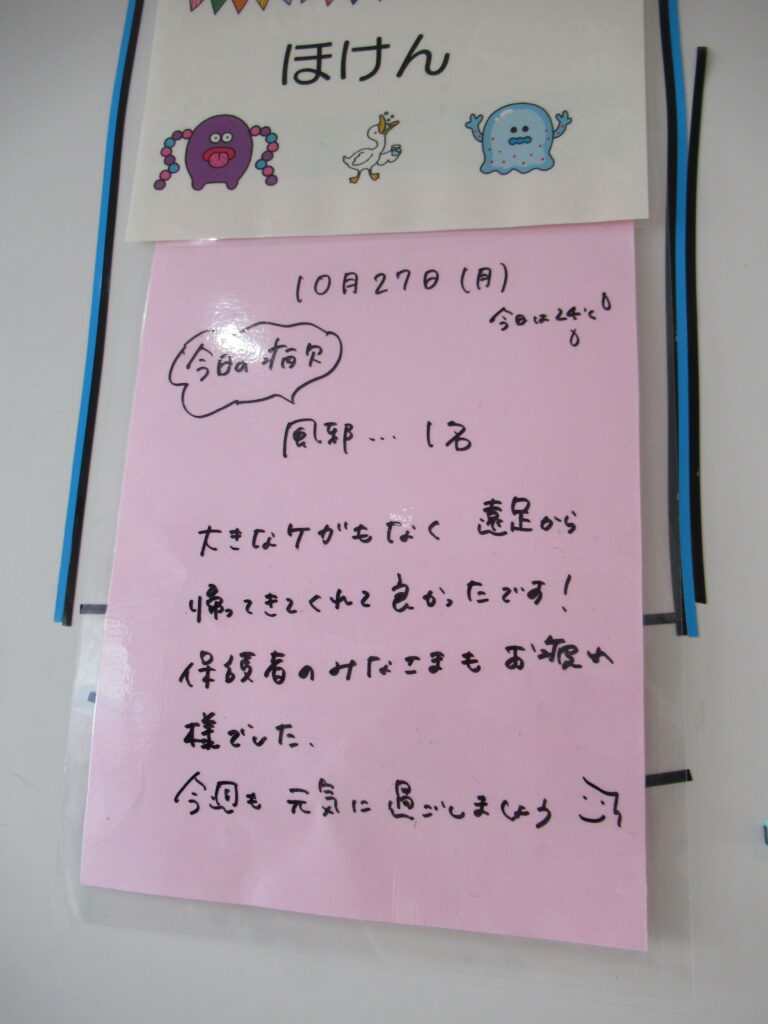 ほけん
10月27日(月)
今日は24℃
今日の病欠
風邪… 1名
大きなケガもなく 遠足から
帰ってきてくれて良かったです!
保護者のみなさまもお疲れ
様でした、
今週も元気に過ごしましょう